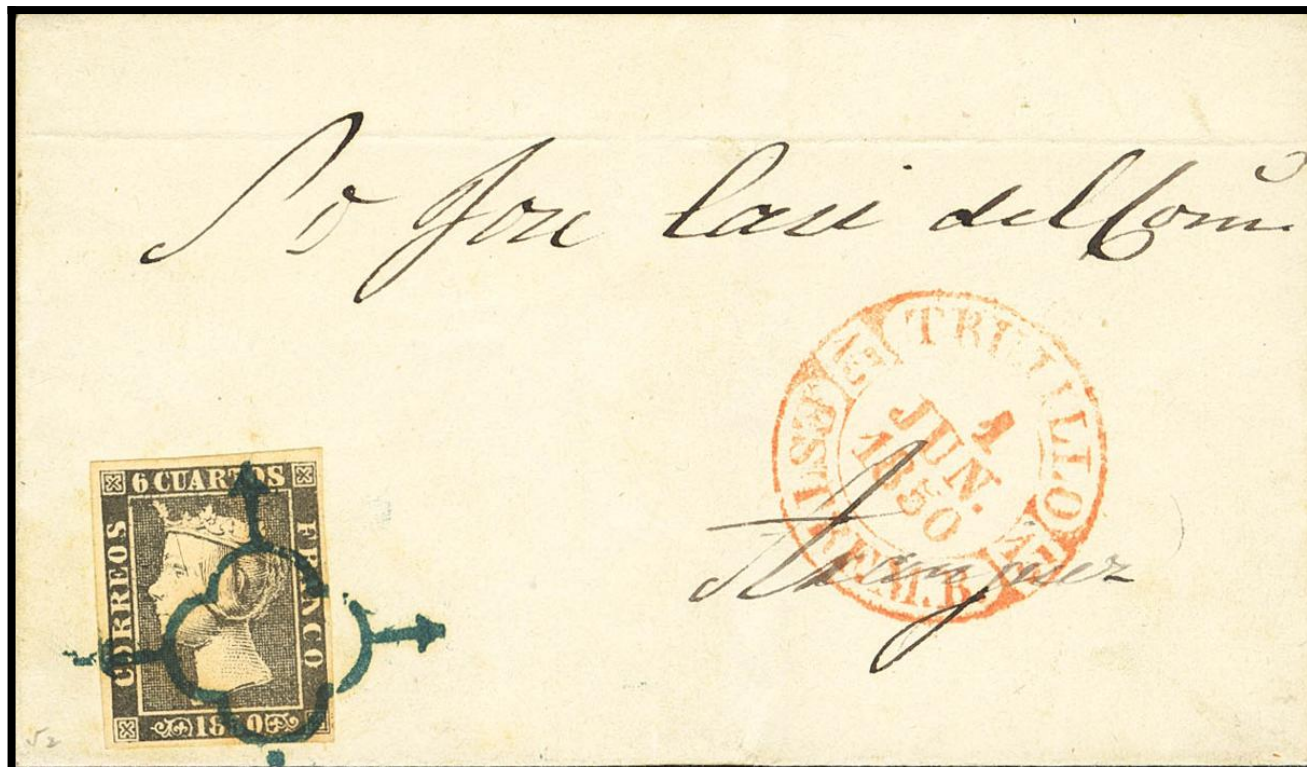 S D Jose Casi del Com
TRUJILLO
1
JUN.
1850
ESTREM. B.
Aranjuez
6 CUARTOS
CORREOS
FRANCO
1850
52